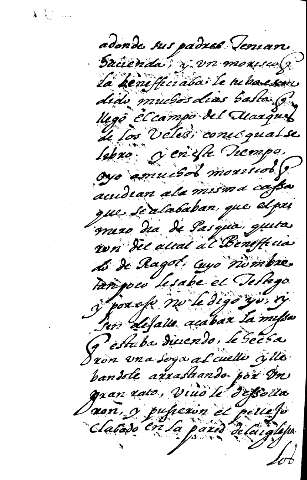 adonde sus padres. Tenian
hacienda; y un morisco q̃
la beneficiaba: le tubo escon
dido muchos dias hasta q̃
llegó el campo del Marques
de los Velez, con el qual se
libro: y en este Tiempo,
oyo a muchos moriscos q̃
acudian a la misma cassa
que se alababan, que el pri
mero dia de Pasqua, quita
ron del altar al Beneficia
do de Ragol, cuyo nombre
tampoco le sabe el Testigo
y por esso no le digo yo, y
sin dejalle acabar la missa
q̃ estaba diciendo, le hecha
ron una soga al cuello y lle
bandole arrastrando por un
gran rato, vivo le desolla
ron, y pusieron el pellejo
clabado en la pared de la iglesia.
Los